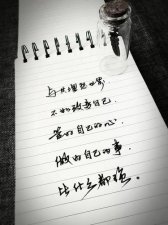 与其埋怨世界
不如改变自己.
管好自己的心.
做好自己的事.
比什么都强。